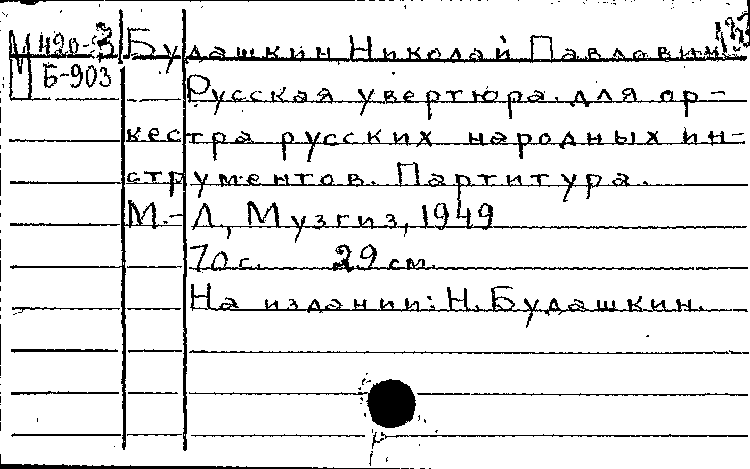 М 420-3 Будашкин Николай Павлович
М Б-903
Русская увертюра для ор-
кестра русских народных ин-
струментов. Партитура.
М.-Л, Музгиз, 1949
70 с. 29 см.
На издании: Н. Будашкин.